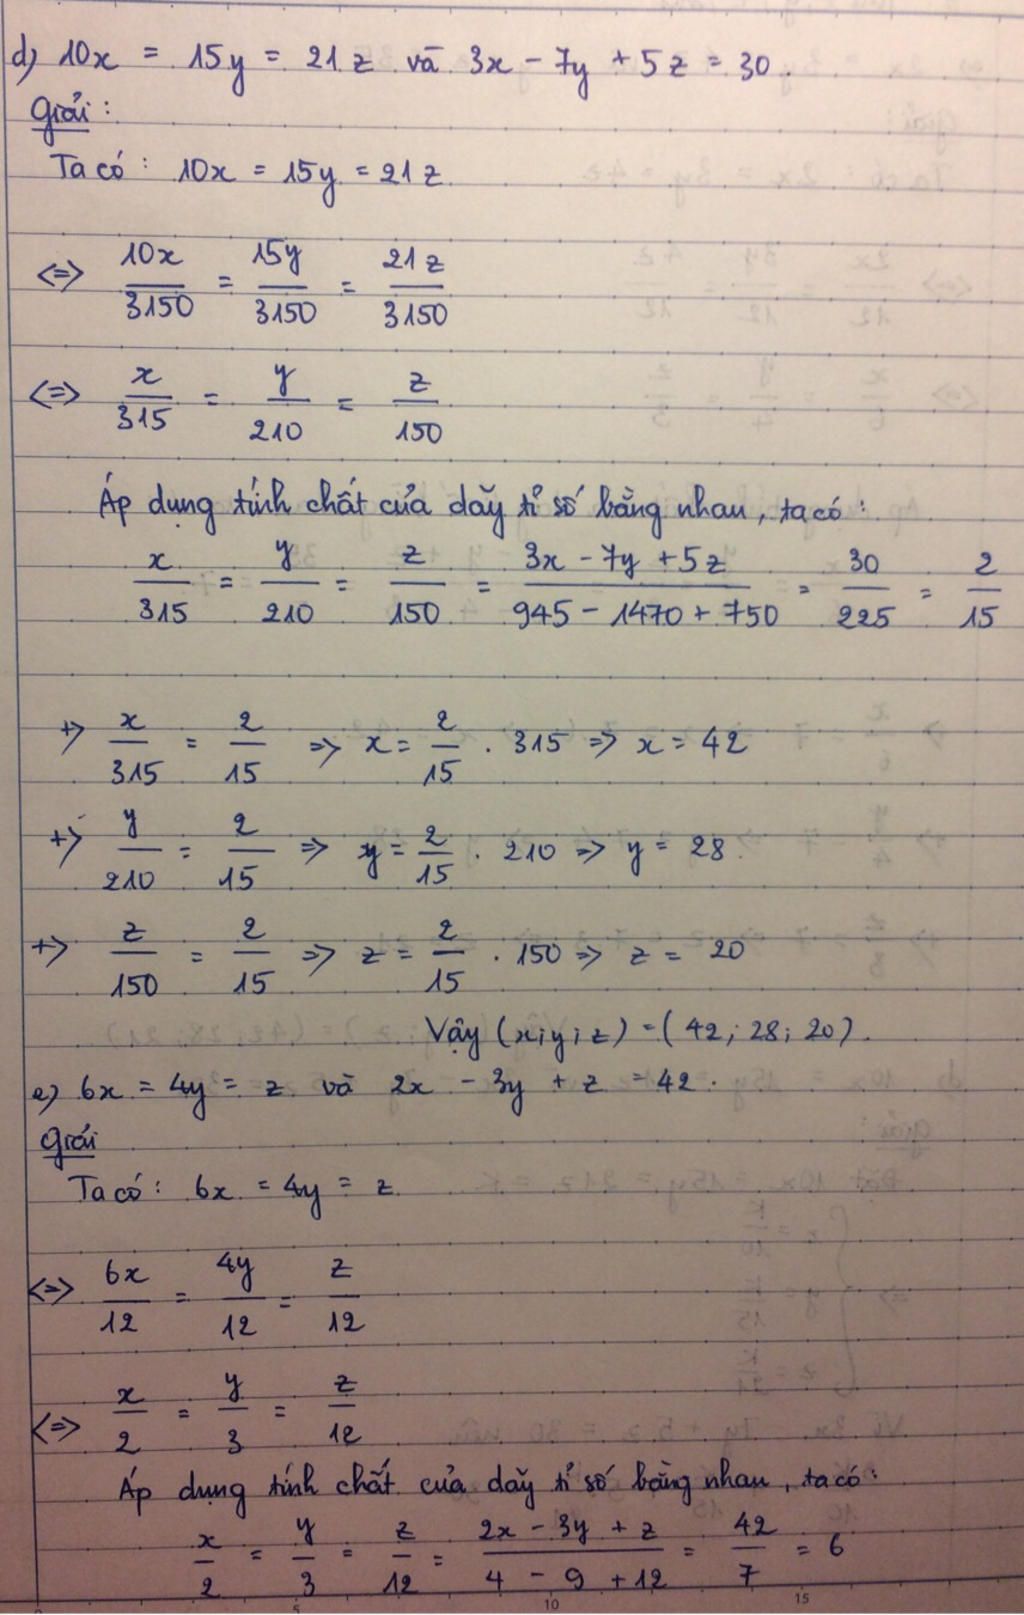 d) 10x = 15y = 21z và 3x - 7y + 5z = 30.
Giải:
Ta có: 10x = 15y = 21z
<=> 10x/3150 = 15y/3150 = 21z/3150
<=> x/315 = y/210 = z/150
Áp dụng tính chất của dãy tỉ số bằng nhau, ta có:
x/315 = y/210 = z/150 = (3x - 7y + 5z)/(945 - 1470 + 750) = 30/225 = 2/15
+> x/315 = 2/15 => x = 2/15 . 315 => x = 42
+> y/210 = 2/15 => y = 2/15 . 210 => y = 28
+> z/150 = 2/15 => z = 2/15 . 150 => z = 20
Vậy (x;y;z) = (42; 28; 20).
e) 6x = 4y = z và 2x - 3y + z = 42.
Giải
Ta có: 6x = 4y = z
<=> 6x/12 = 4y/12 = z/12
<=> x/2 = y/3 = z/12
Áp dụng tính chất của dãy tỉ số bằng nhau, ta có:
x/2 = y/3 = z/12 = (2x - 3y + z)/(4 - 9 + 12) = 42/7 = 6
5 10 15